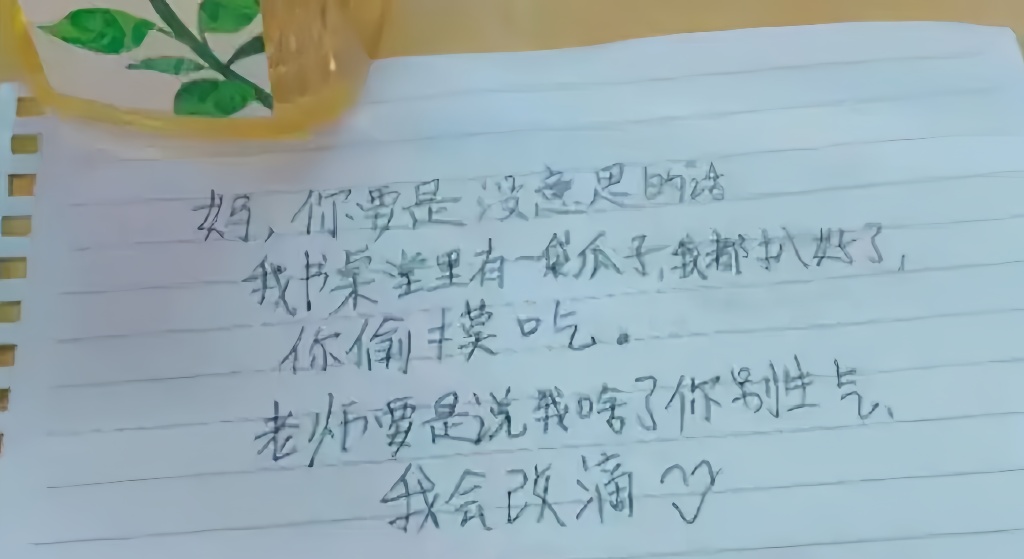 妈,你要是没意思的话
我书桌堂里有一袋瓜子,我都扒好了,
你偷摸吃.
老师要是说我啥了你别生气、
我会改滴